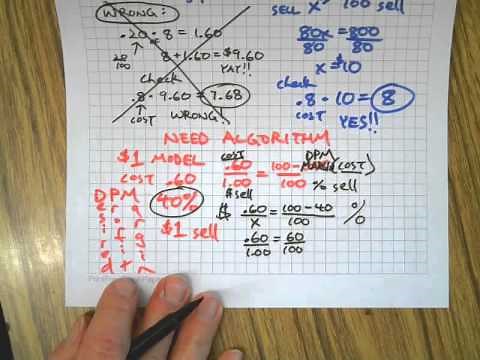 WRONG:
.20 · 8 = 1.60
20/100
8 + 1.60 = $9.60
YAY!!
check
.8 · 9.60 = 7.68
COST
WRONG
SELL x 100 sell
80x = 800
80 80
x = $10
check
.8 · 10 = 8
COST YES!!
NEED ALGORITHM
$1 MODEL
COST .60
40%
$1 sell
DPM
Desired
Profit
Margin
COST
.60/1.00 = 100 - DPM (COST)/100
$ sell
% sell
$ .60/x = 100 - 40/100 %
.60/1.00 = 60/100